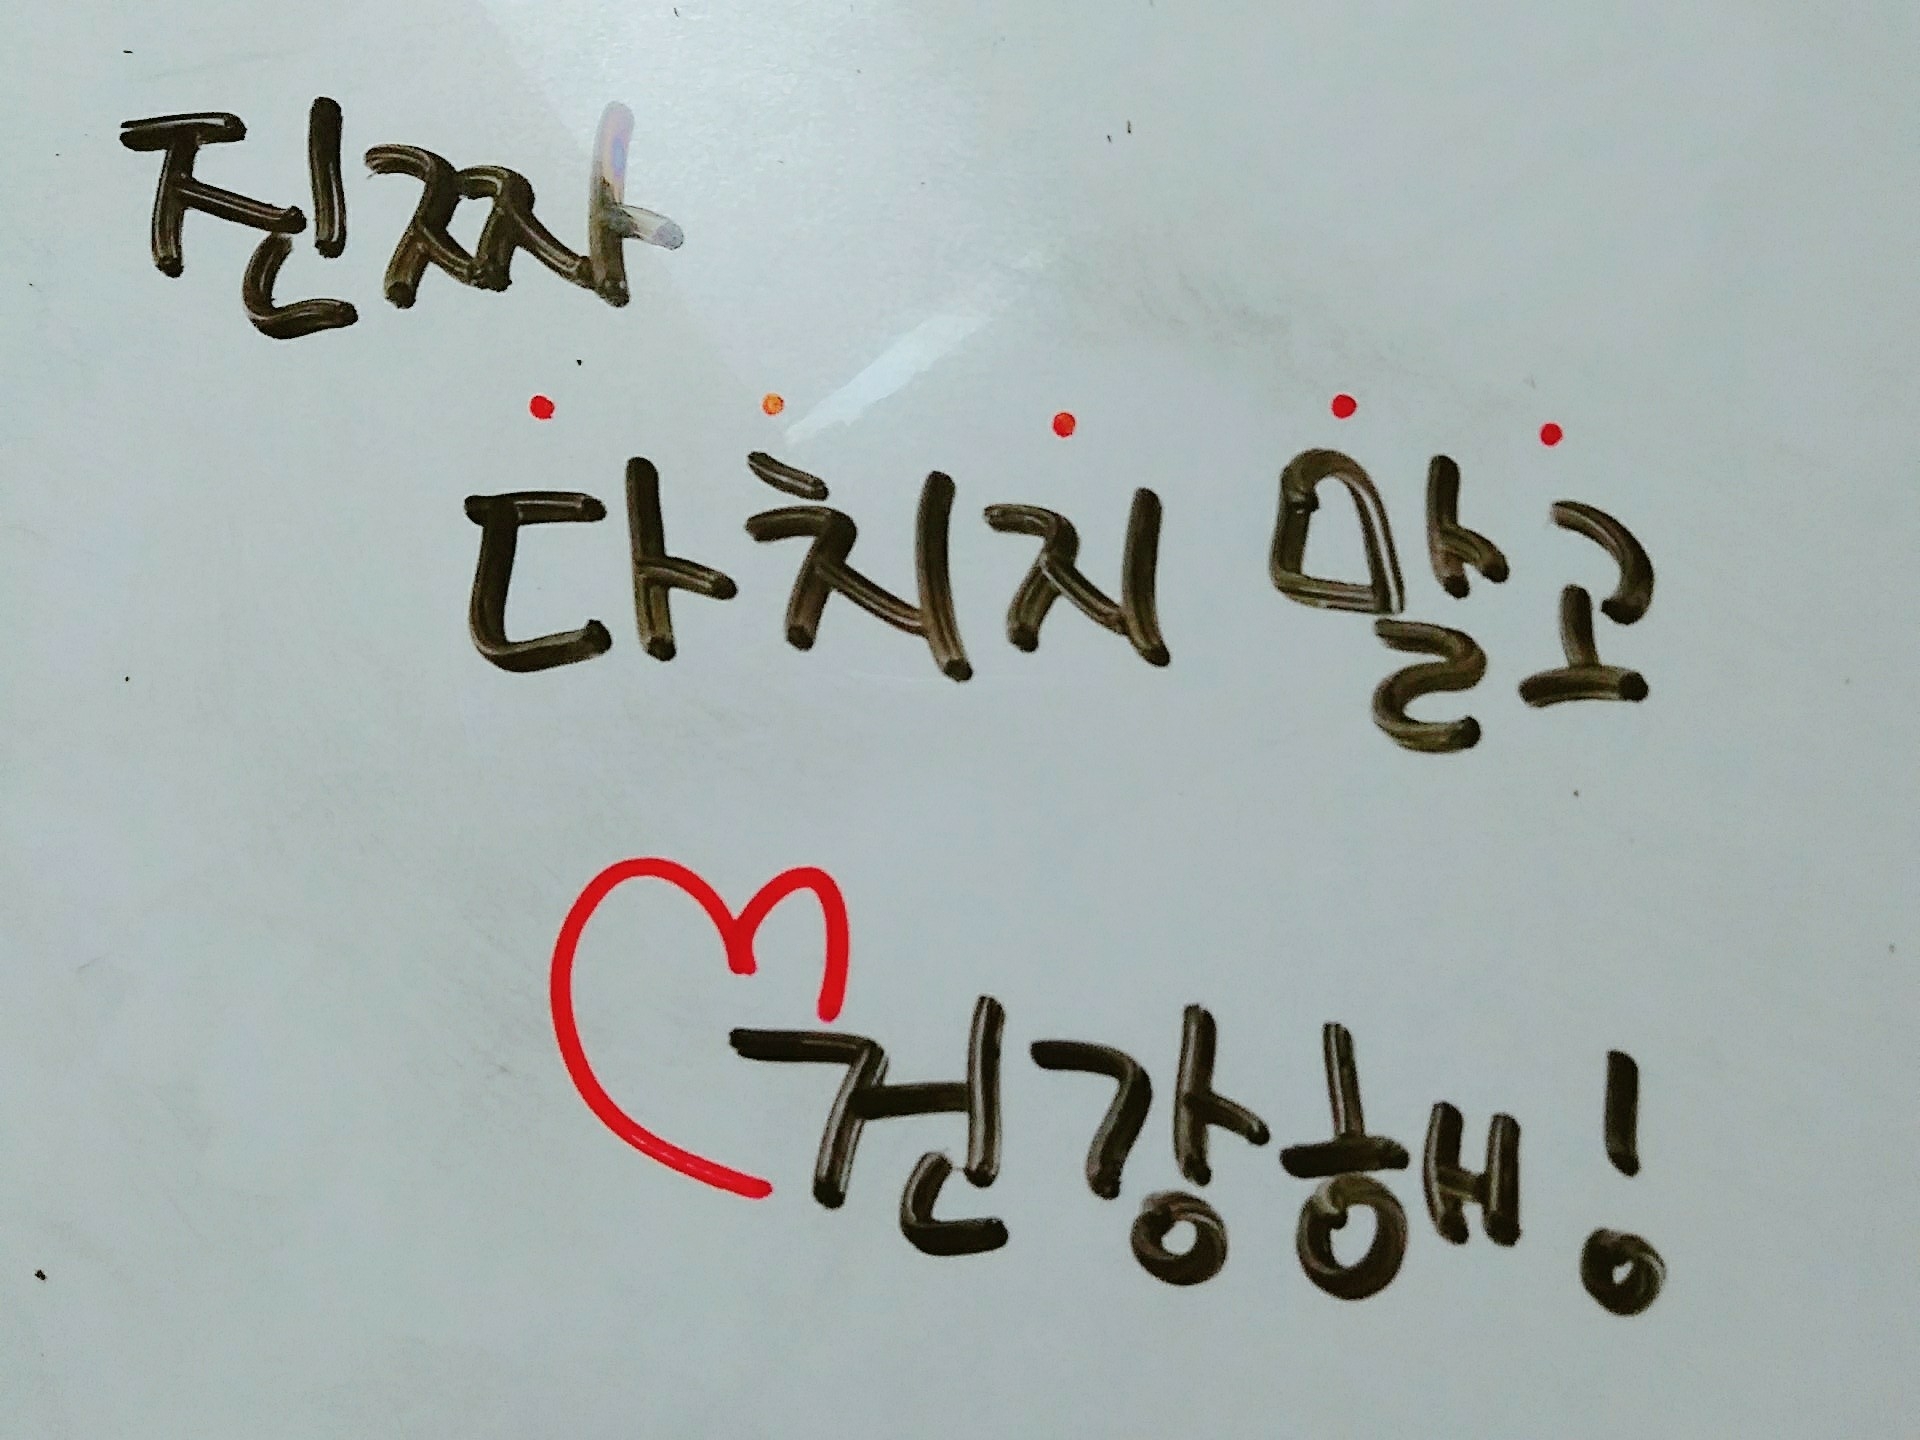 진짜
다치지 말고
건강해!